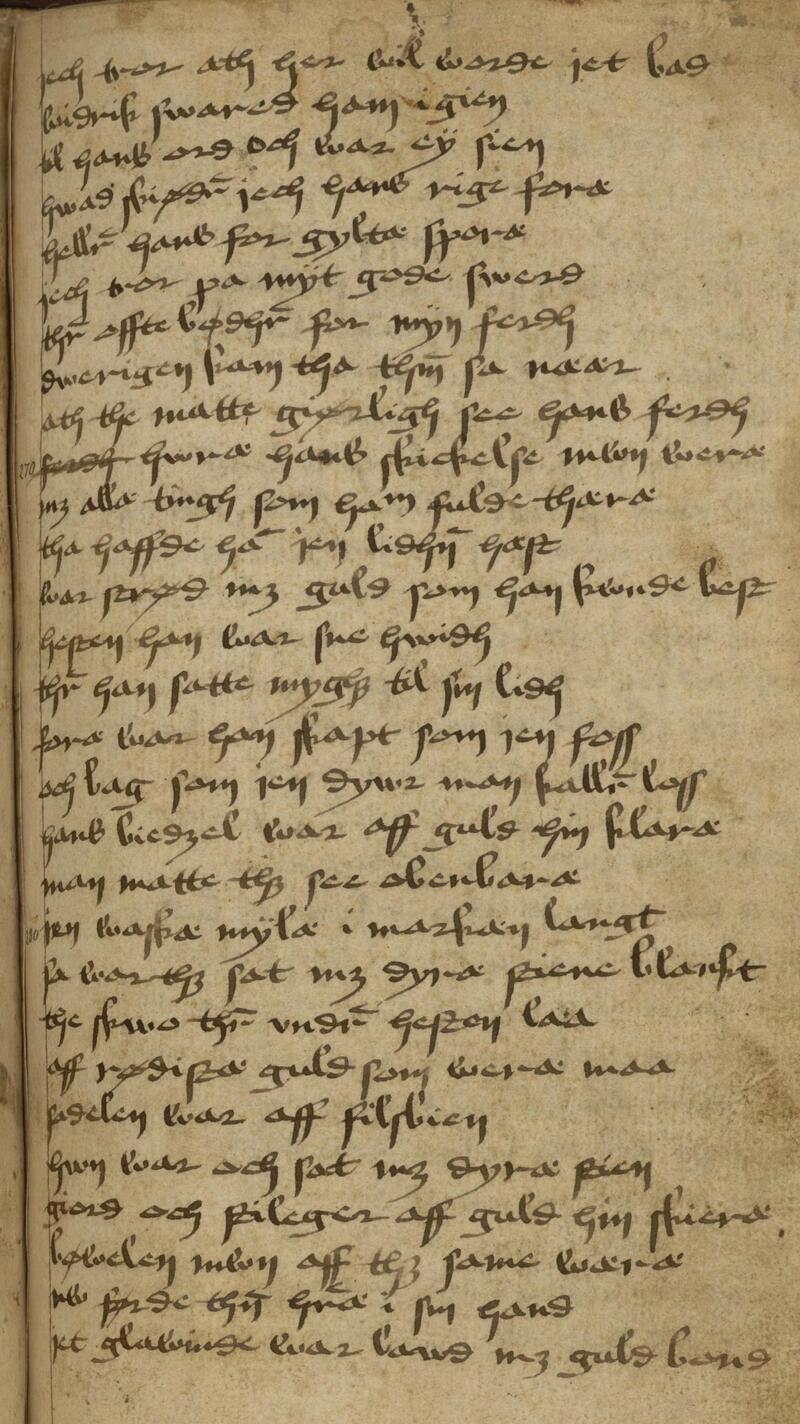 jech tror ath her wil worde jet bad
widrik swared ham igien
til hans ord och war ey sien
hwad skiødr jech hans rige foræ
hellr hans for gyltæ sporæ
jech tror pa myt gode swerd
thr offte bødhr for myn ferdh
dwerigen kam tha thm sa nær
ath the matte gørligh see hans ferdh
hwræ hans skickelse mwn weræ
mz alla tingh som ham fulde thæræ
tha haffde ha jen lidhn hæst
war strød mz guld som han kwnde best
hesten han war sne hwidh
thr han satte mygh til sin lidh
foræ war han skapt som jen foss
och bag som jen dywr man kallr loss
hans biedzel war aff guld hin klaræ
man matte thz see obenbaræ
jen waskæ mylæ i markæn langt
sa war thz sat mz dyræ stiene blankt
the skwo thr vndr hesten laa
aff rødistæ guld som weræ maa
sdelen war aff filsbien
hwn war och sat mz dyræ stien
giord och stileger aff guld hin skieræ
bowelen mwn aff thz same wæræ
nw førde thn hræ i sin hand
jet glawinde war lawd mz guld bond